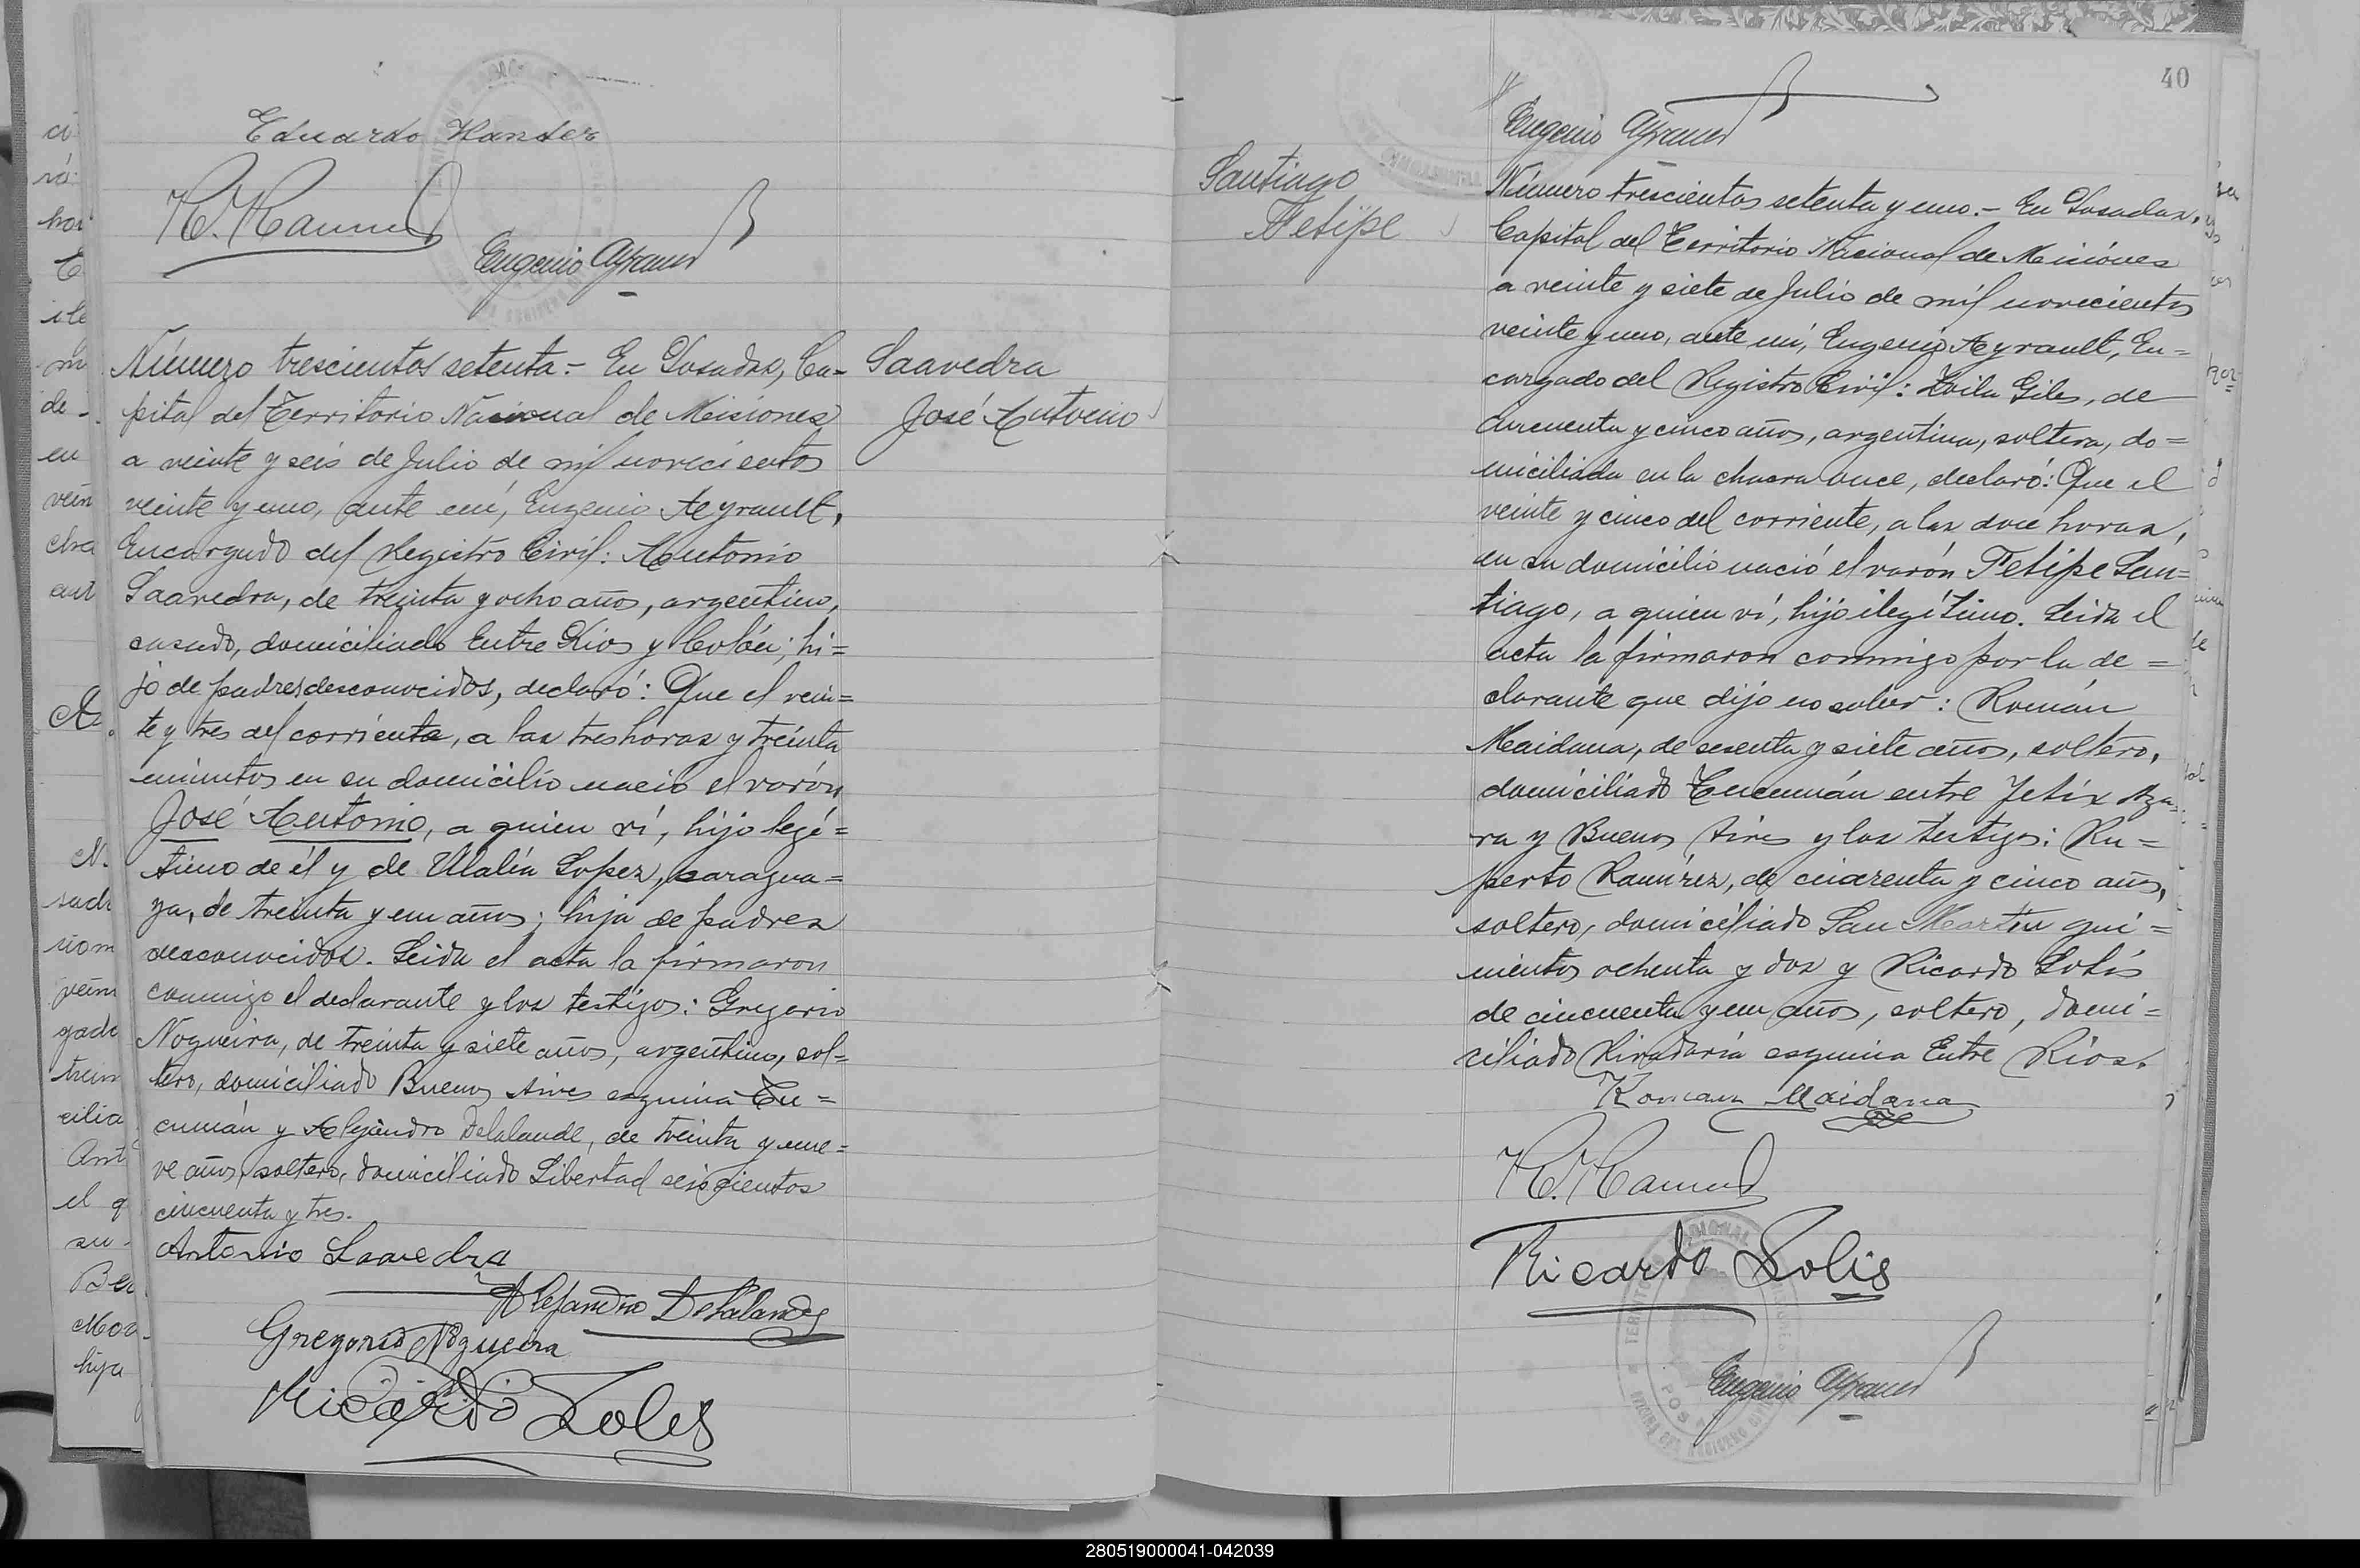 Eduardo Hander
R. Ram
Eugenio Ayrault
Número trescientos setenta.- En Posadas, Ca-
pital del Territorio Nacional de Misiones
a veinte y seis de Julio de mil novecientos
veinte y uno, ante mí, Eugenio Ayrault,
Encargado del Registro Civil: Antonio
Saavedra, de treinta y ocho años, argentino,
casado, domiciliado Entre Rios y Colón; hi=
jo de padres desconocidos, declaró: Que el vein=
te y tres del corriente, a las tres horas y treinta
minutos en su domicilio nació el varón
José Antonio, a quien ví, hijo legí=
timo de él y de Ulalia Lopez, paragua=
ya, de treinta y un años; hija de padres
desconocidos. Leida el acta la firmaron
conmigo el declarante y los testigos: Gregorio
Nogueira, de treinta y siete años, argentino, sol=
tero, domiciliado Buenos Aires esquina Tu=
cumán y Alejandro Delalande, de treinta y nue=
ve años, soltero, domiciliado Libertad seiscientos
cincuenta y tres.
Antonio Saavedra
Alejandro Delalande
Gregorio Noguera
Ricardo Solis
Saavedra
José Antonio
40
Eugenio Ayrault
Santiago
Felipe
Número trescientos setenta y uno.- En Posadas,
Capital del Territorio Nacional de Misiónes
a veinte y siete de Julio de mil novecientos
veinte y uno, ante mí, Eugenio Ayrault, En=
cargado del Registro Civil: Zoila Giles, de
cincuenta y cinco años, argentina, soltera, do=
miciliada en la chacra once, declaró: Que el
veinte y cinco del corriente, a las doce horas,
en su domicilio nació el varón Felipe San=
tiago, a quien ví, hijo ilegítimo. Leida el
acta la firmaron conmigo por la de=
clarante que dijo no saber: Román
Maidana, de sesenta y siete años, soltero,
domiciliado Tucumán entre Felix Aza-
ra y Buenos Aires y los testigos: Ru=
perto Ramírez, de cuarenta y cinco años,
soltero, domiciliado San Martín qui=
nientos ochenta y dos y Ricardo Solís
de cincuenta y un años, soltero, domi=
ciliado Rivadavia esquina Entre Rios.
Roman Maidana
R. Ram
Ricardo Solis
Eugenio Ayrault
280519000041-042039